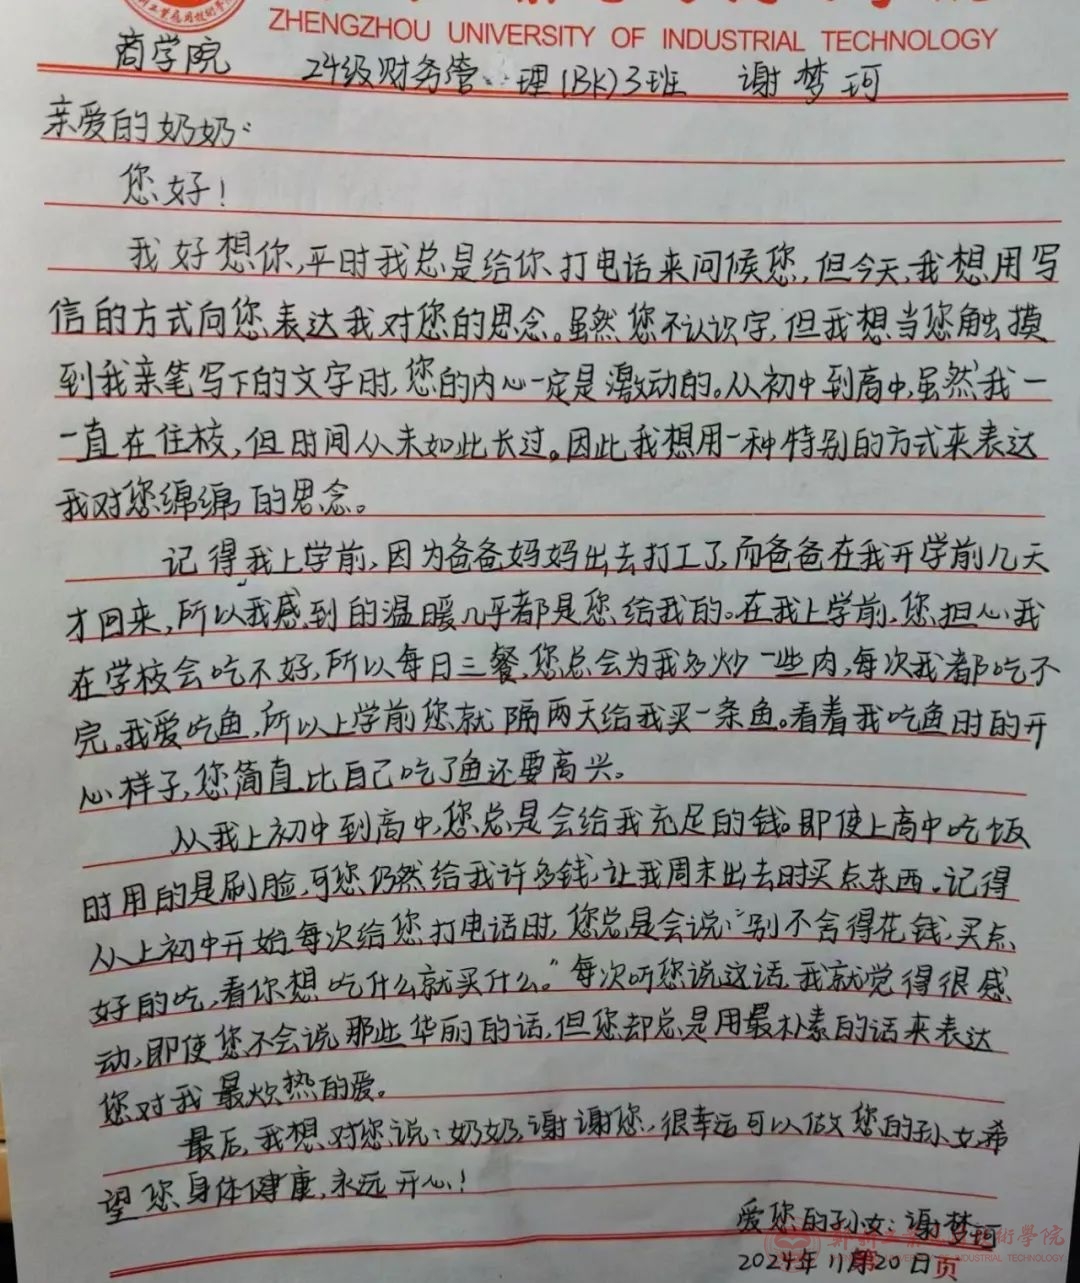 ZHENGZHOU UNIVERSITY OF INDUSTRIAL TECHNOLOGY
商学院 24级财务管理(BK)3班 谢梦珂
亲爱的奶奶:
您好!
我好想你,平时我总是给你打电话来问候您,但今天,我想用写
信的方式向您表达我对您的思念。虽然您不认识字,但我想当您触摸
到我亲笔写下的文字时,您的内心一定是激动的。从初中到高中,虽然我一
一直在住校,但时间从未如此长过。因此我想用一种特别的方式来表达
我对您绵绵的思念。
记得我上学前,因为爸爸妈妈出去打工了,而爸爸在我开学前几天
才回来,所以我感到的温暖几乎都是您给我的。在我上学前,您担心我
在学校会吃不好,所以每日三餐,您总会为我多炒一些肉,每次我都吃不
完。我爱吃鱼,所以上学前您就隔两天给我买一条鱼。看着我吃鱼时的开
心样子,您简直比自己吃了鱼还要高兴。
从我上初中到高中,您总是会给我充足的钱。即使上高中吃饭
时用的是刷脸,可您仍然给我许多钱,让我周末出去时买点东西。记得
从上初中开始,每次给您打电话时,您总是会说:“别不舍得花钱,买点
好的吃,看你想吃什么就买什么。”每次听您说这话,我就觉得很感
动,即使您不会说那些华丽的话,但您却总是用最朴素的话来表达
您对我最炽热的爱。
最后,我想对您说:奶奶,谢谢您,很幸运可以做您的孙女,希
望您身体健康,永远开心!
爱您的孙女:谢梦珂
2024年11月20日
第 页
INDUSTRIAL TECHNOLOGY